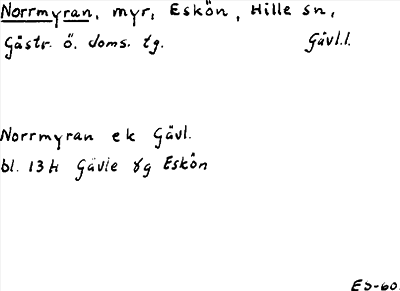 Norrmyran, myr, Eskön, Hille sn,
Gästr. ö. doms. tg. Gävl.l.
Norrmyran ek Gävl.
bl. 13 H Gävle yg Eskön
ES-60